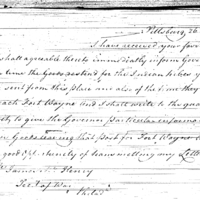 Pittsburg, 26
I have received your favor
shall agreeable thereto immediately inform Gov
time the Goods destined for the Indian tribes y
sent from this place and also of the time they
each Fort Wayne and I shall write to the qua
ty to give the Governor particular informa
Goods leaving that post for Fort Wayne
good opportunity of transmitting any Lette
James McHenry
Secy of War
Philada